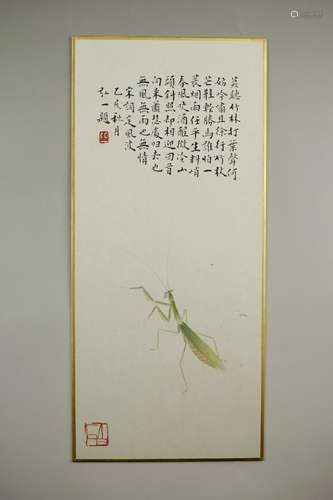 莫聽竹林打葉聲何
妨吟嘯且徐行竹杖
芒鞋輕勝馬誰怕一
蓑烟雨任平生料峭
春風吹酒醒微冷山
頭斜照却相迎回首
向來蕭瑟處歸去也
無風無雨也無情
宋詞定風波
乙亥秋月
弘一題